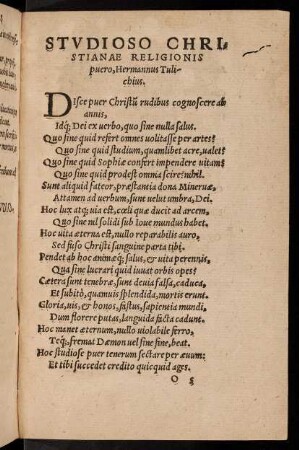 STVDIOSO CHRI-
STIANAE RELIGIONIS
puero, Hermannus Tuli-
chius.
Disce puer Christũ rudibus cognoscere ab
annis,
Idq; Dei ex uerbo, quo sine nulla salus.
Quo sine quid refert omnes uolitasse per artes?
Quo sine quid studium, quamlibet acre, ualet?
Quo sine quid Sophiæ confert impendere uitam?
Quo sine quid prodest omnia scire? nihil.
Sunt aliquid fateor, præstantia dona Mineruæ,
Attamen ad uerbum, sunt uelut umbra, Dei.
Hoc lux atq; uia est, cœli quæ ducit ad arcem,
Quo sine nil solidi sub Ioue mundus habet.
Hoc uita æterna est, nullo reparabilis auro,
Sed fuso Christi sanguine parta tibi.
Pendet ab hoc animæq; salus, & uita perennis,
Qua sine lucrari quid iuuat orbis opes?
Cætera sunt tenebræ, sunt deuia falsa, caduca,
Et subitò, quamuis splendida, mortis erunt.
Gloria, uis, & honos, fastus, sapientia mundi,
Dum florere putas, languida facta cadunt.
Hoc manet æternum, nullo uiolabile ferro,
Teq; fremat Dæmon uel sine fine, beat.
Hoc studiose puer tenerum sectare per æuum:
Et tibi succedet credito quicquid ages.
O 5